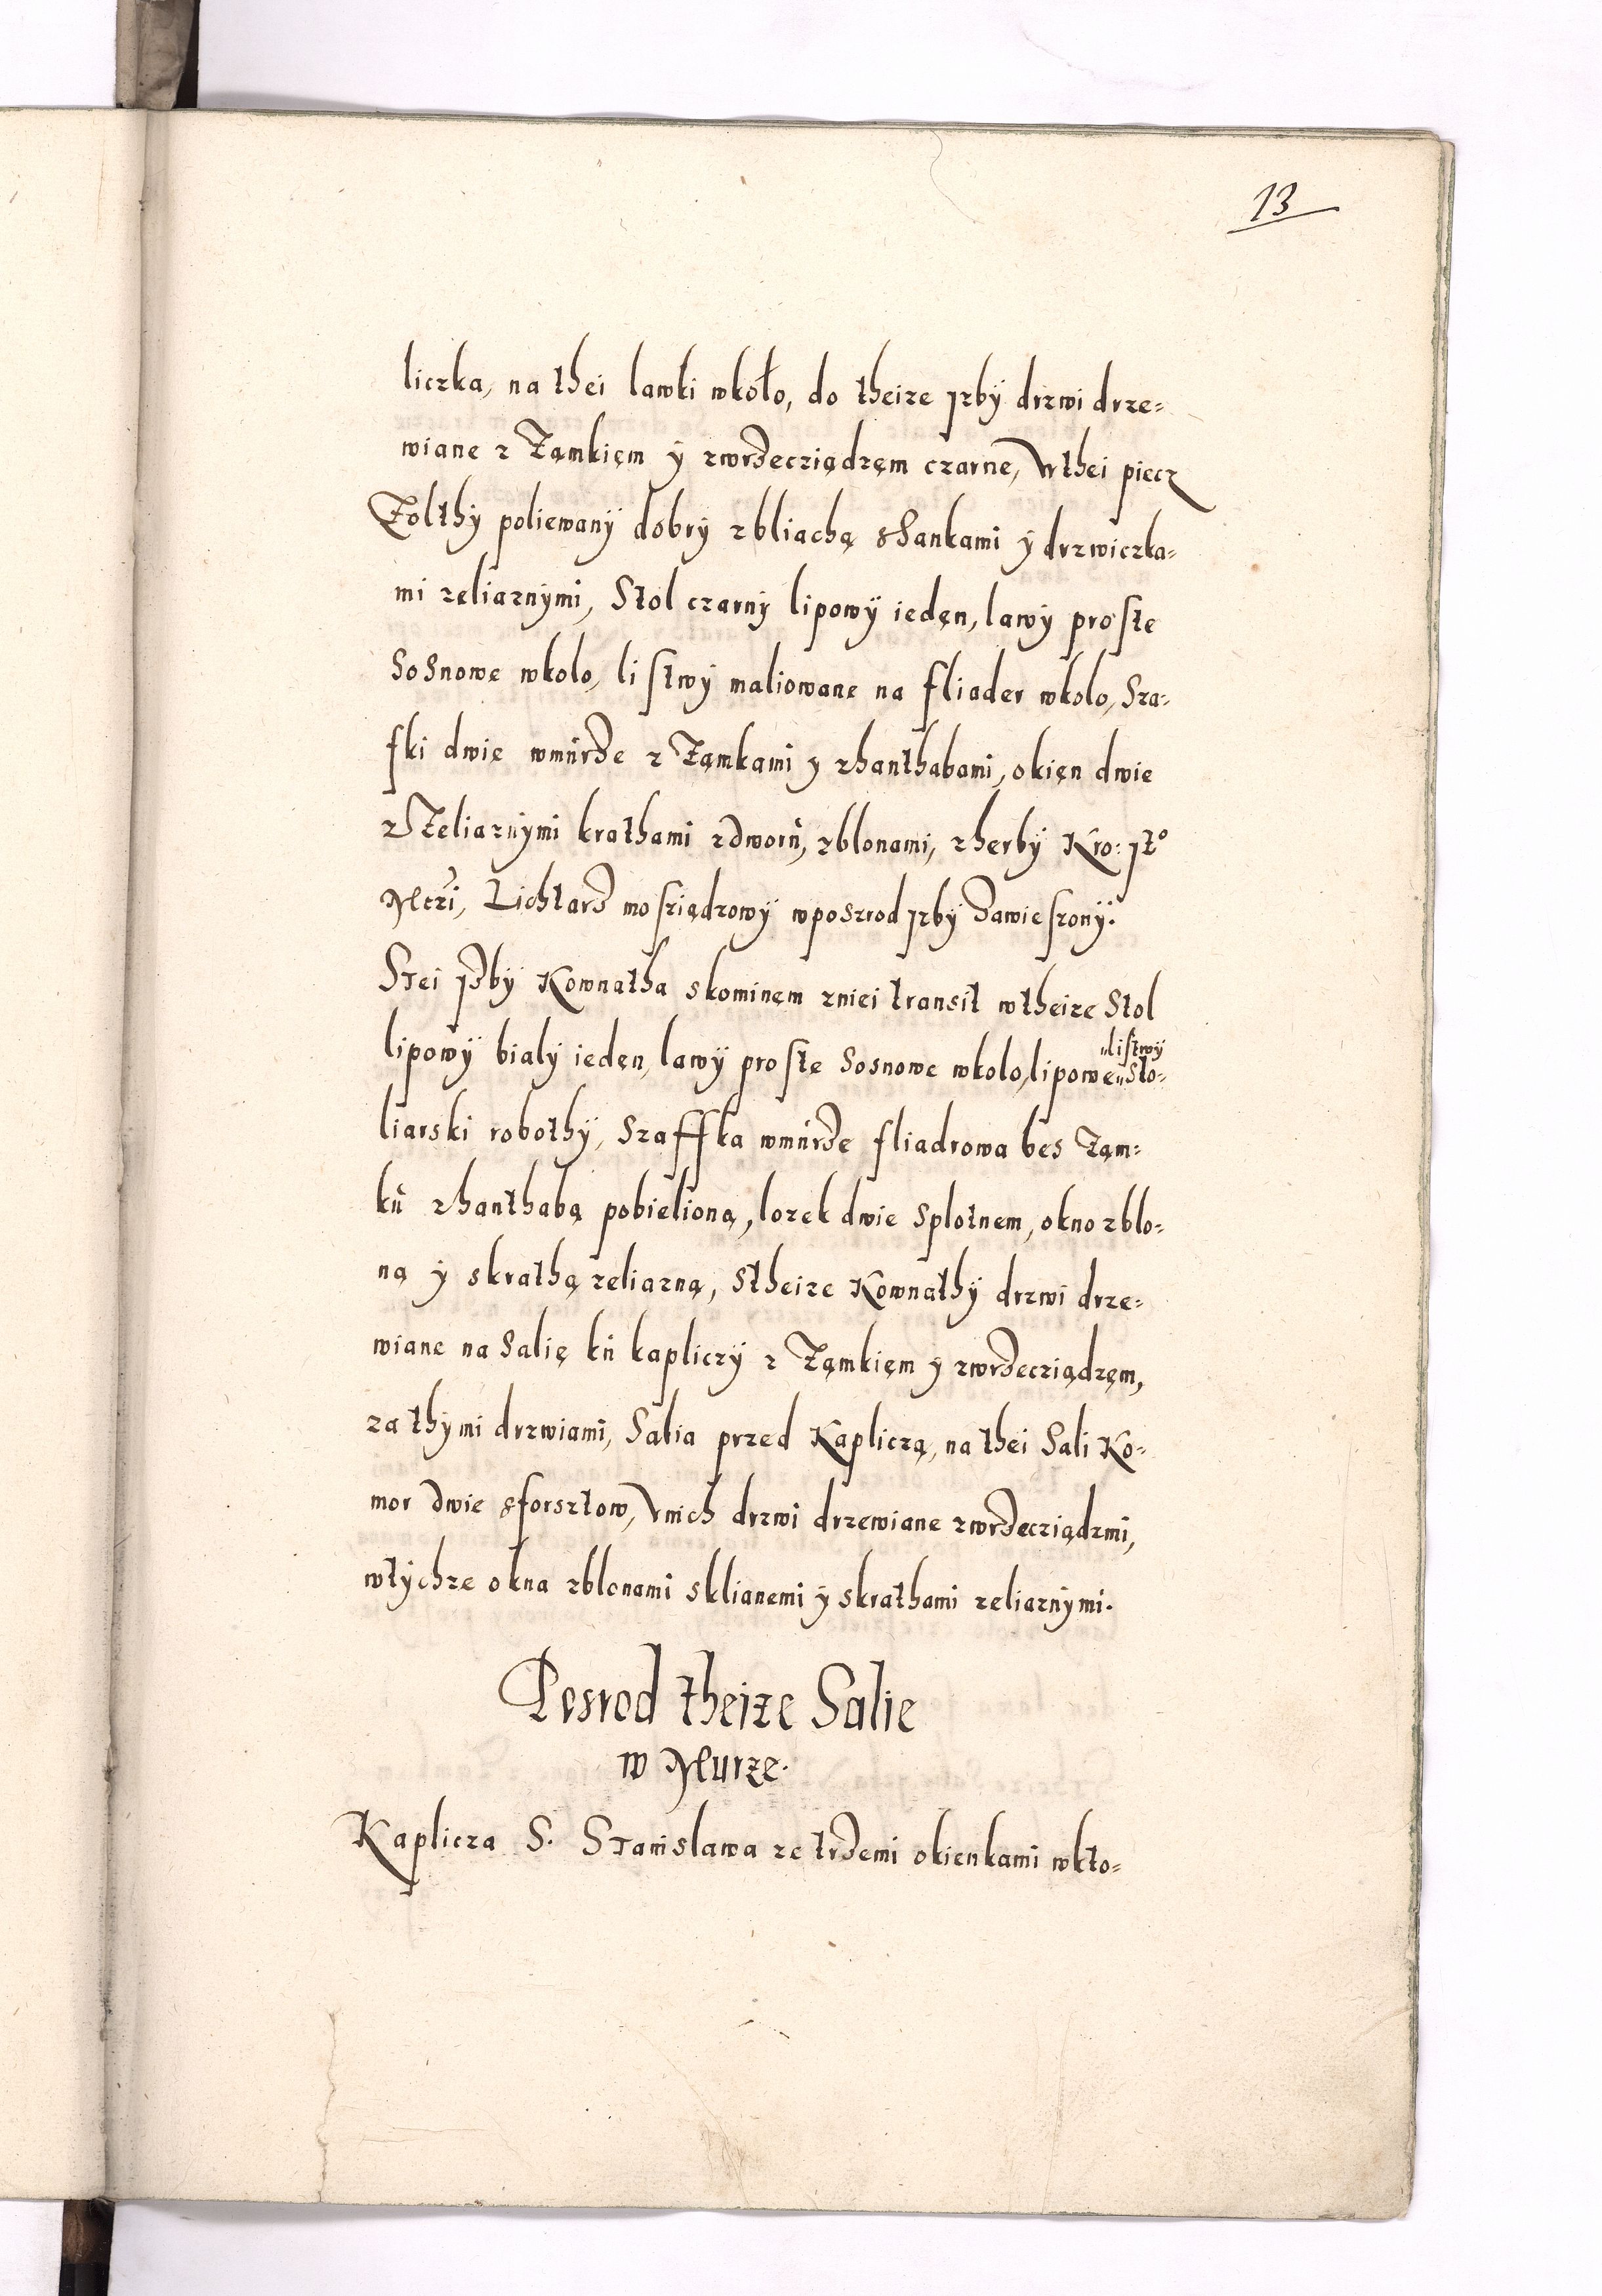 13
liczka, na thei lawki wkoło, do theize jzbÿ drzwi drze=
wiane z Zamkięm ÿ zwrzecziądzęm czarne, Vthei piecz
Zolthÿ poliewanÿ dobrÿ zbliachą shankami ÿ drzwiczka=
mi zeliaznÿmi, Stol czarnÿ lipowÿ ieden, lawÿ proste
Sosnowe wkolo, listwÿ maliowane na fliader wkolo, Sza=
fki dwie wmurze z Zamkami y zhanthabami, okięn dwie
z Zeliaznÿmi krathami zdworu, zblonami, zherbÿ Kro: jtº
Mczi, Lichtarz mosziądzowÿ wposzrod jzbÿ Zawieszonÿ.
Stei jzbÿ Kownatha skominęm zniei transit wtheize Stol
lipowÿ bialÿ ieden, lawÿ proste Sosnowe wkolo, lipowe "listwÿ" Sto=
liarski robothÿ, Szaffka wmurze fliadrowa bes Zam=
ku zhanthabą pobielioną, lozek dwie Splotnem, okno zblo=
ną ÿ skrathą zeliazną, Stheize Kownathÿ drzwi drze=
wiane na Salię ku kapliczÿ z Zamkięm y zwrzecziądzęm,
za thÿmi drzwiami, Salia przed Kapliczą, na thei Sali Ko=
mor dwie sforsztow, Vnich drzwi drzewiane zwrzecziądzmi,
wtÿchze okna zblonami sklianemi ÿ skrathami zeliaznÿmi.
Posrod theize Salie
w Murze.
Kaplicza S. Stanislawa ze trzemi okienkami wkto=